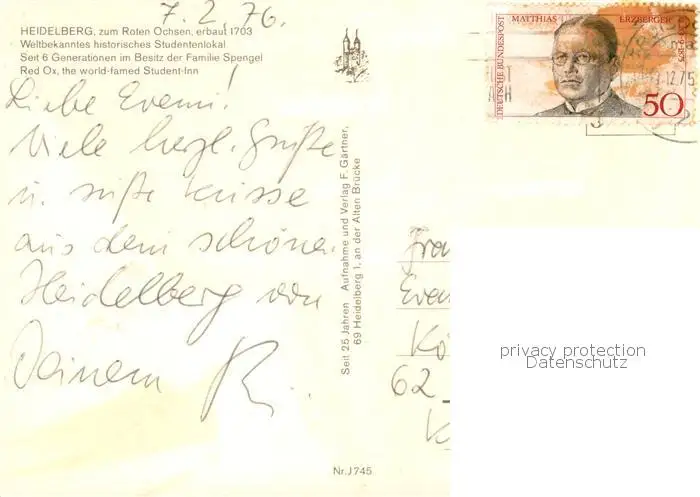 7.2.76.
HEIDELBERG, zum Roten Ochsen, erbaut 1703
Weltbekanntes historisches Studentenlokal
Seit 6 Generationen im Besitz der Familie Spengel
Red Ox, the world-famed Student-Inn
Liebe Evemi!
Viele herzl. Grüße
u. süße Küsse
aus dem schönen
Heidelberg von
Deinem R.
Seit 25 Jahren Aufnahme und Verlag F. Gärtner,
69 Heidelberg 1, an der Alten Brücke
Nr. J 745
DEUTSCHE BUNDESPOST
MATTHIAS ERZBERGER
1875-1921
50
Frau
Eve
Kö
62
K
privacy protection
Datenschutz